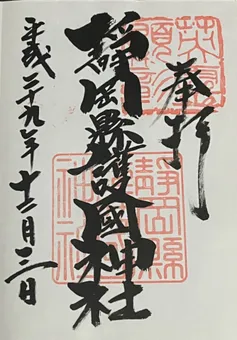 奉拝
靜岡縣護國神社
平成二十九年十二月三日
英霊顕彰
靜岡縣護國神社